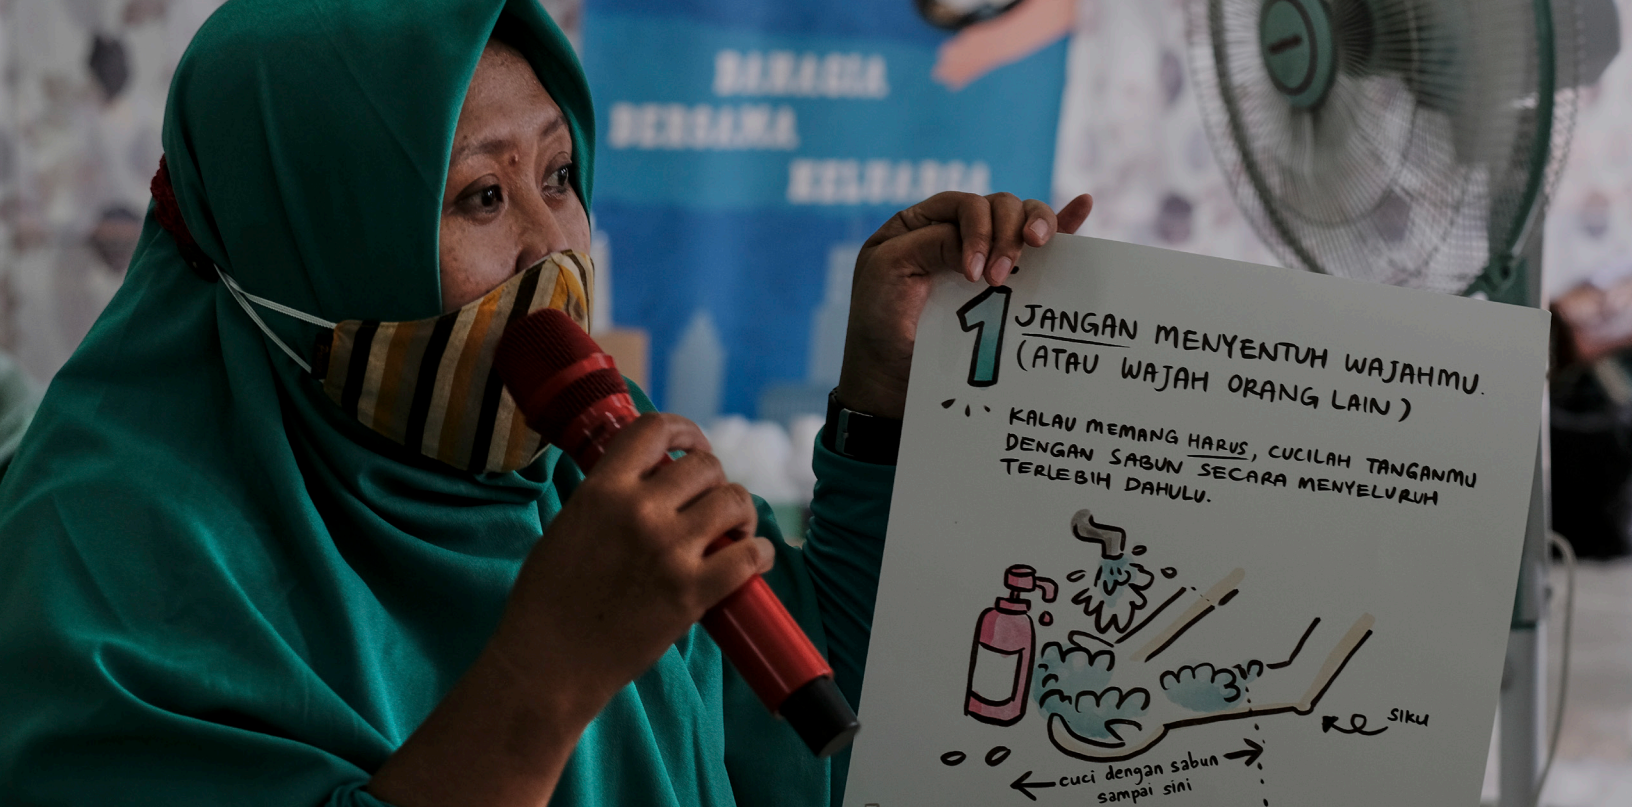 BAHAGIA
BERSAMA
KELUARGA
1
JANGAN MENYENTUH WAJAHMU.
(ATAU WAJAH ORANG LAIN)
KALAU MEMANG HARUS, CUCILAH TANGANMU
DENGAN SABUN SECARA MENYELURUH
TERLEBIH DAHULU.
SIKU
cuci dengan sabun
sampai sini